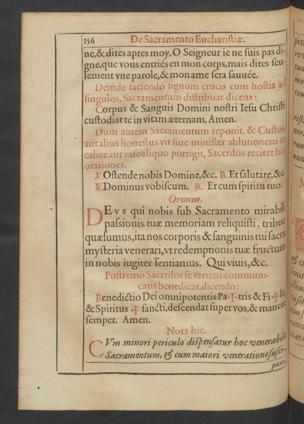 156 De Sacramento Eucharistiæ.
ne, & dites apres moy. O Seigneur ie ne suis pas di-
gne, que vous entriés en mon corps, mais dites seu-
lement vne parole, & mon ame sera sauuée.
Deinde faciendo signum crucis cum hostia ad
singulos, Sacramentum distribuat dicens:
Corpus & Sanguis Domini nostri Iesu Christi
custodiat te in vitam æternam, Amen.
Dum autem Sacramentum reponit, & Custos,
aut alius honestus vir siue minister ablutionem ex
calice aut vase aliquo porrigit, Sacerdos recitet has
orationes.
℣. Ostende nobis Domine, &c. ℟. Et salutare, &c.
℣. Dominus vobiscum. ℟. Et cum spiritu tuo.
Oremus.
DEVS qui nobis sub Sacramento mirabili
passionis tuæ memoriam reliquisti, tribue
quæsumus, ita nos corporis & sanguinis tui sacra
mysteria venerari, vt redemptionis tuæ fructum
in nobis iugiter sentiamus. Qui viuis, &c.
Postremo Sacerdos se vertens communi-
catis benedicat, dicendo:
Benedictio Dei omnipotentis Pa ✠ tris & Fi ✠ lij
& Spiritus ✠ sancti, descendat super vos, & maneat
semper. Amen.
Nota hic.
CVm minori periculo dispensatur hoc venerabile
Sacramentum, & cum maiori veneratione susci-